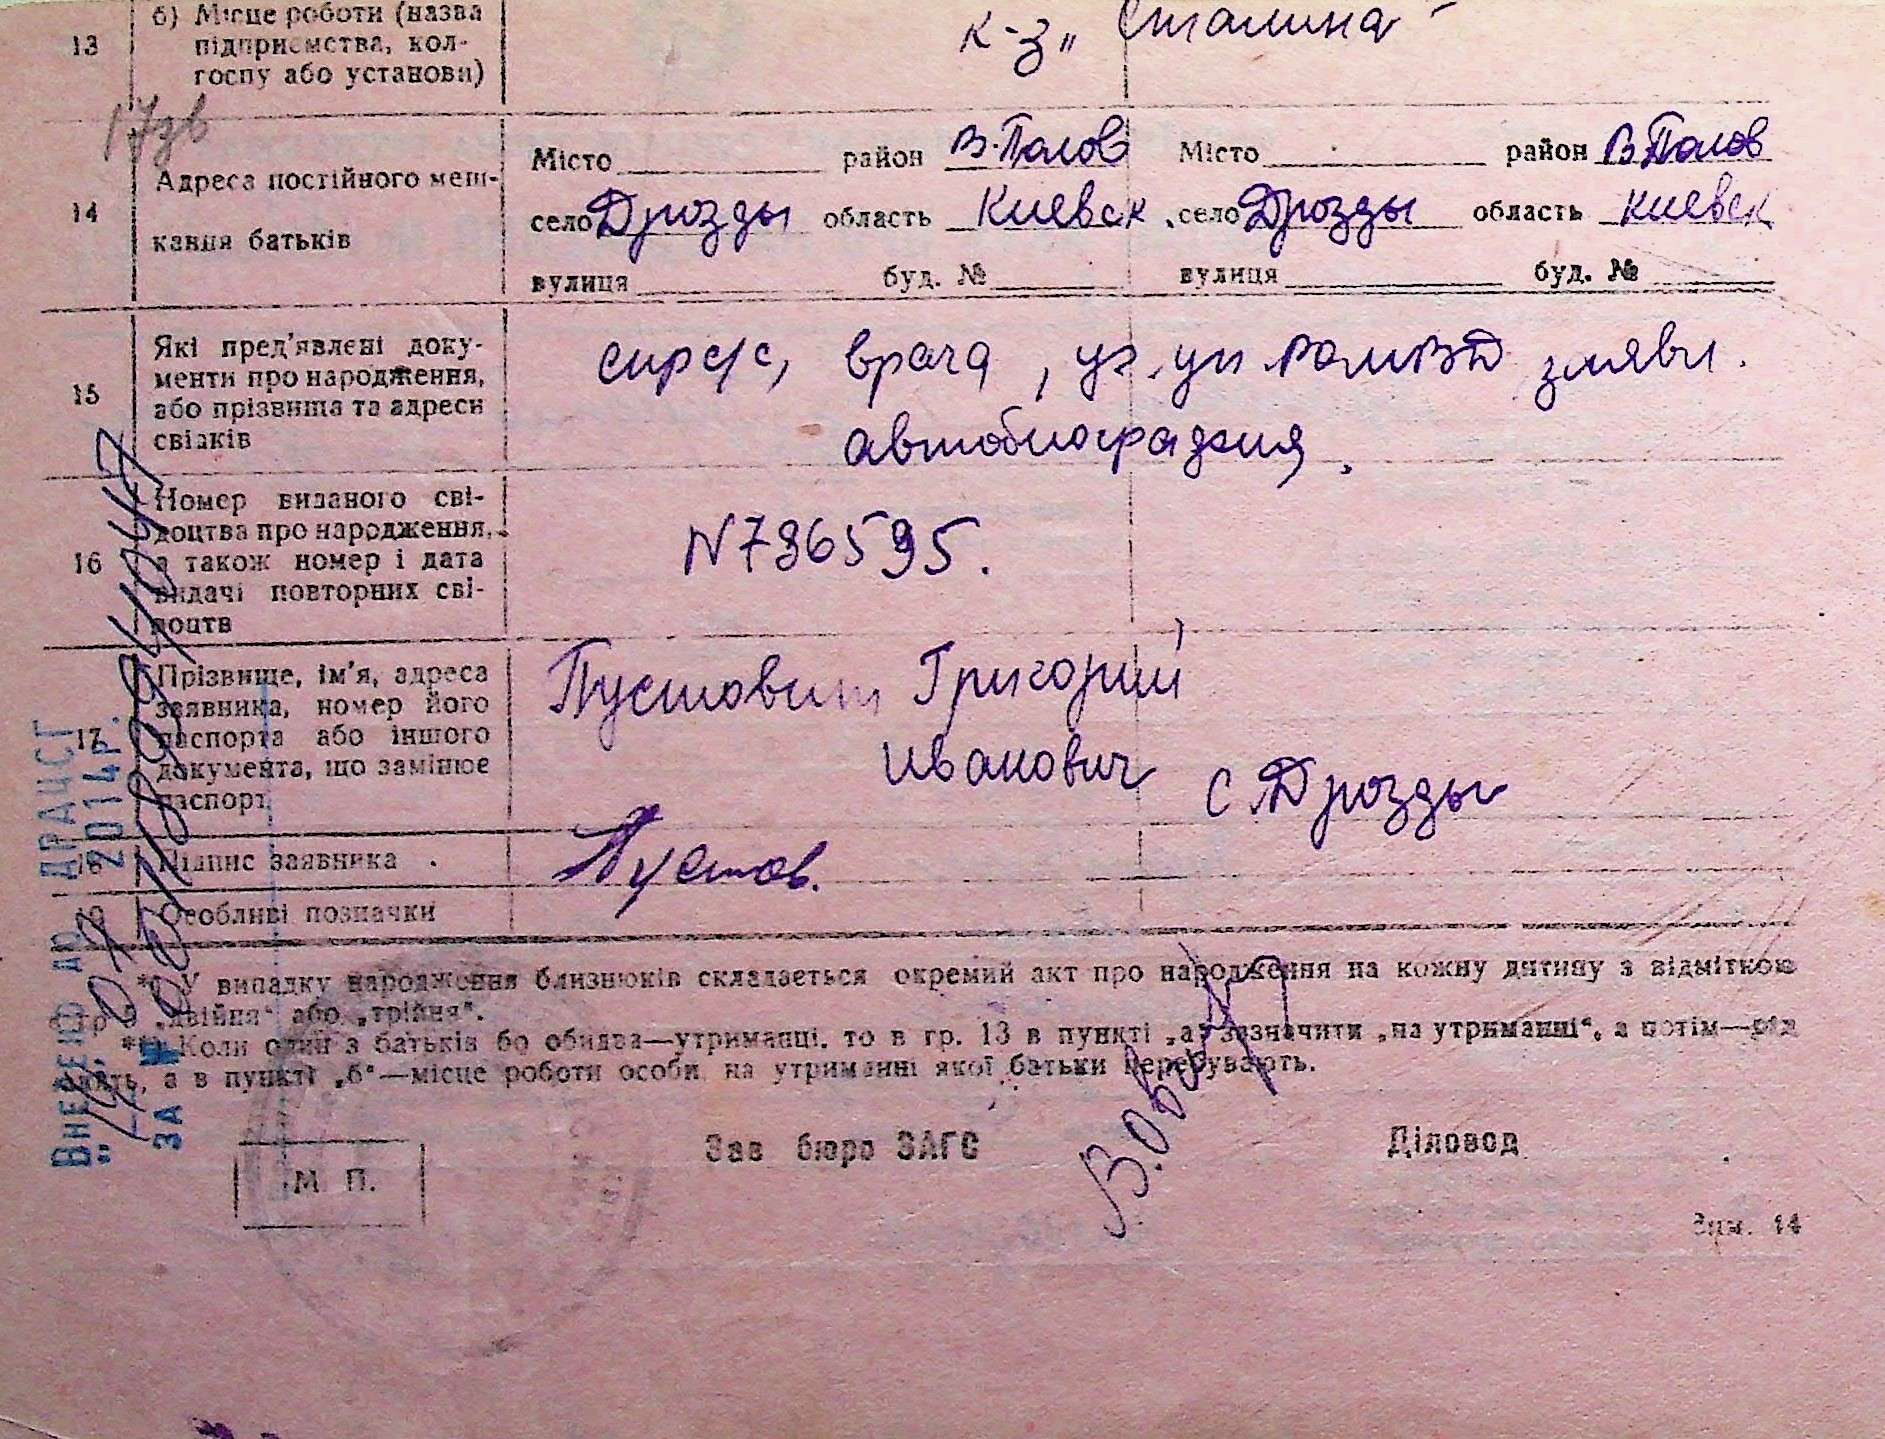 13 б) Місце роботи (назва підприємства, колгоспу або установи)
к-з „ Сталина"
17зв
14 Адреса постійного мешкання батьків
Місто район В-Полов Місто район В Полов
село Дрозды область Киевск село Дрозды область Киевск
вулиця буд. № вулиця буд. №
15 Які пред'явлені документи про народження, або прізвища та адреси свідків
врача, заяви.
автобиография,
16 Номер виданого свідоцтва про народження, а також номер і дата видачі повторних свідоцтв
N 736595.
17 Прізвище, ім'я, адреса заявника, номер його паспорта або іншого документа, що замінює паспорт
Пустовит Григорий
Иванович с Дрозды
18 Підпис заявника
Пустов.
19 Особливі позначки
*) У випадку народження близнюків складається окремий акт про народження на кожну дитину з відміткою
гр 5 „двійня" або „трійня".
**) Коли один з батьків бо обидва—утриманці. то в гр. 13 в пункті „а" зазначити „на утриманні", а потім—рід
занять, а в пункті „б"—місце роботи особи на утриманні якої батьки перебувають.
Зав бюро ЗАГС Діловод
М П.
Зам. 14
Внесено до ДРАЦСГ
2014р.
за №